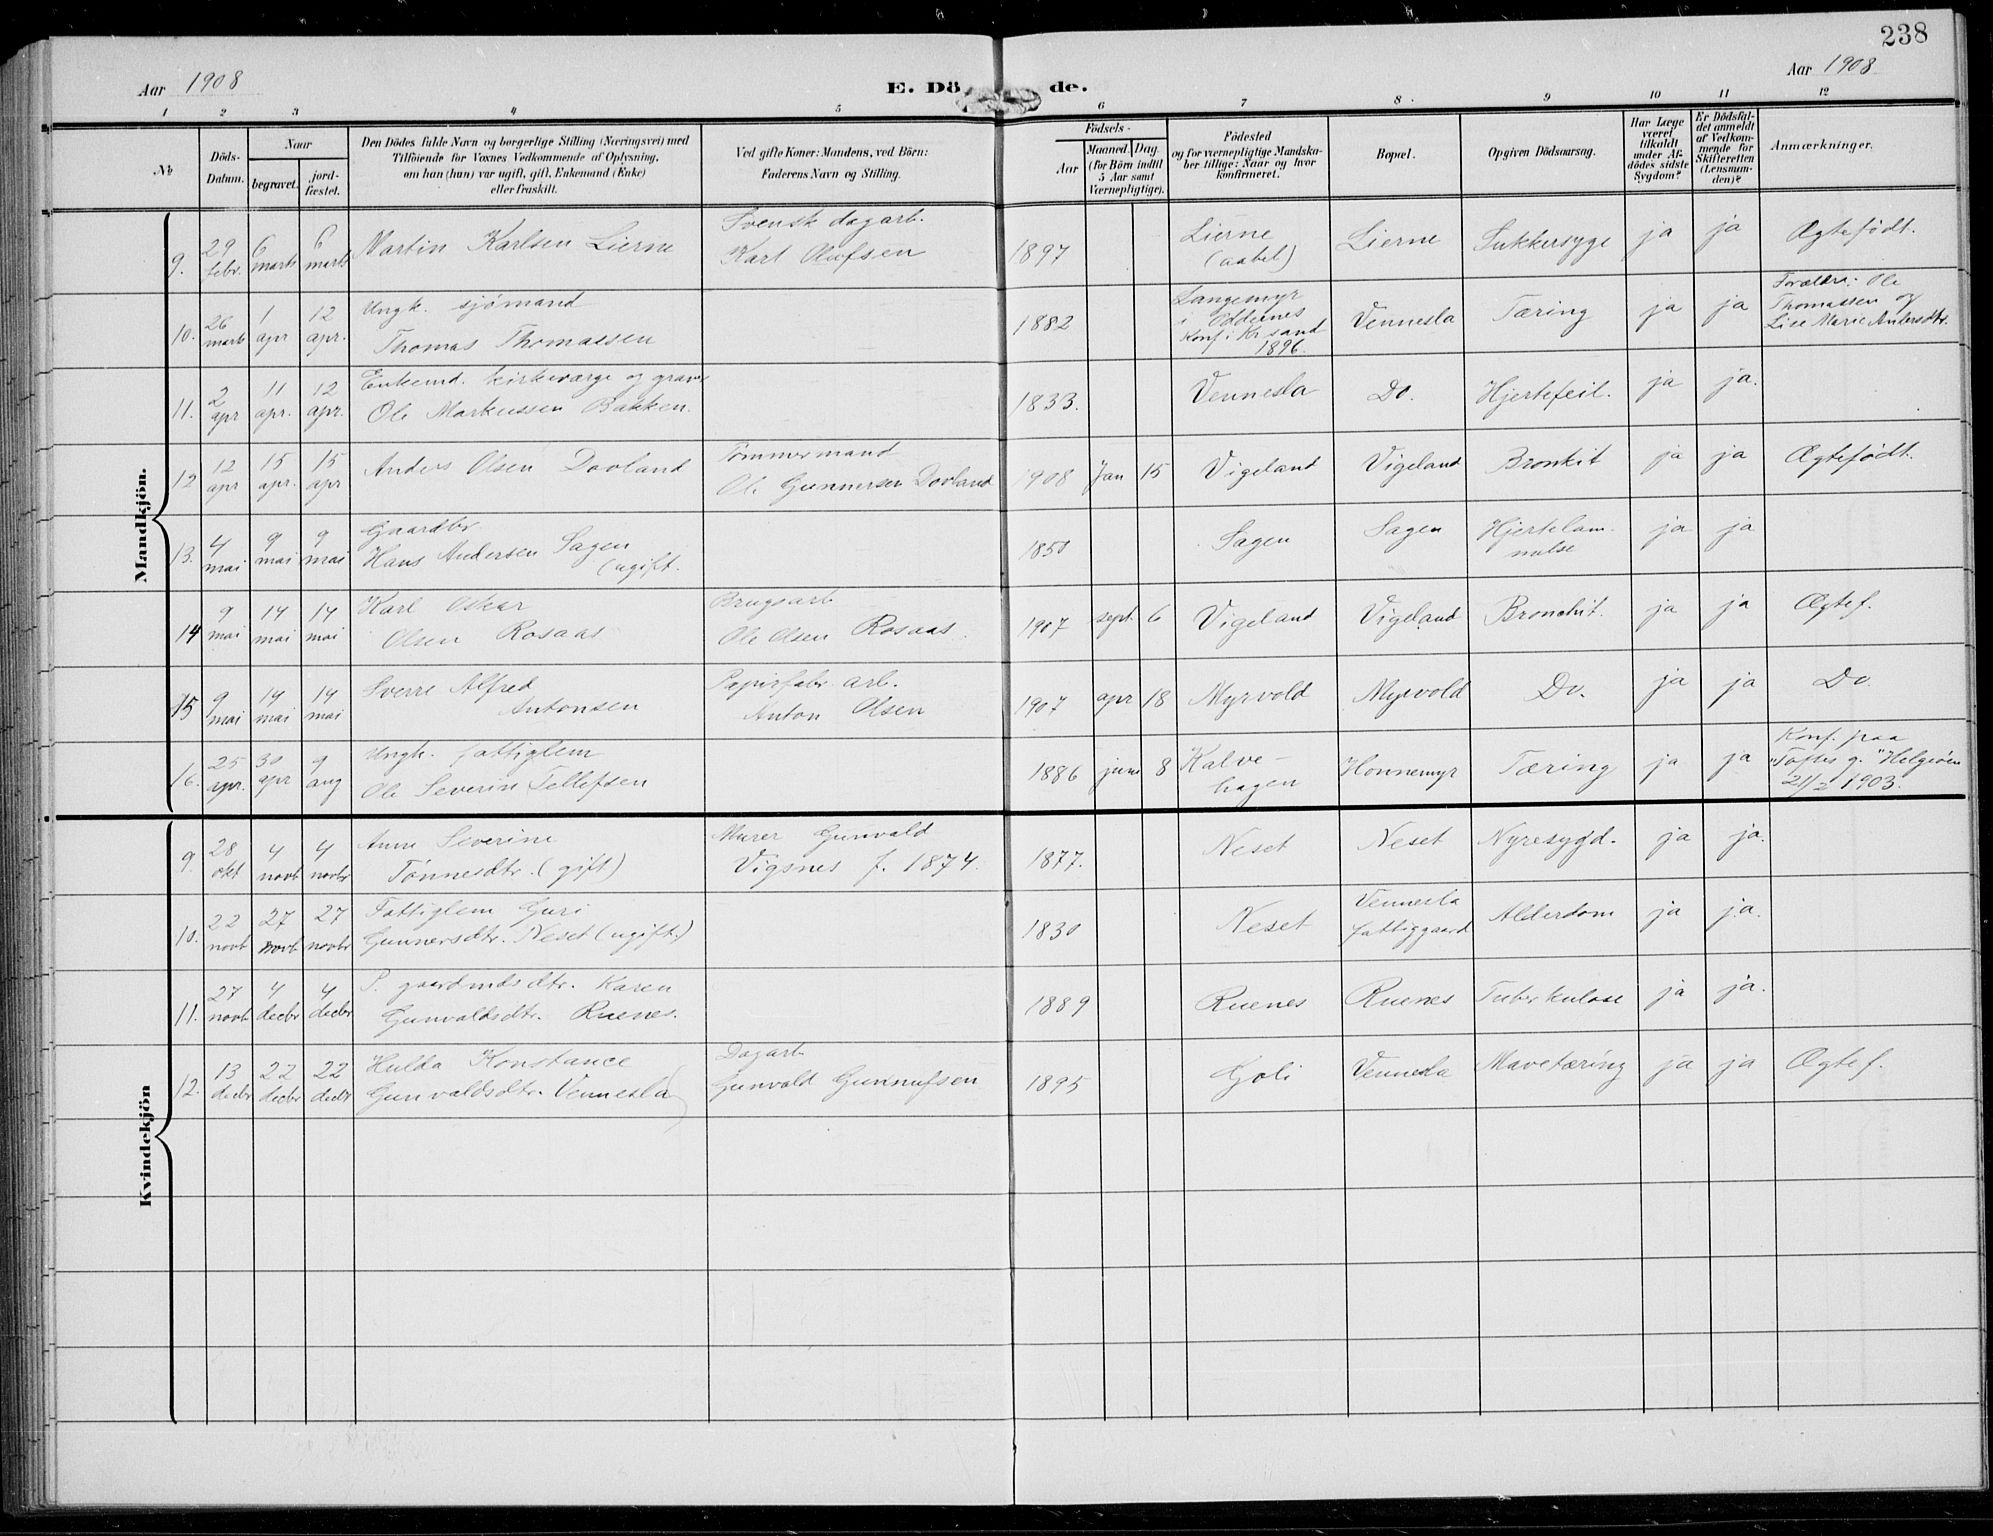 238
Aar 1908
E. Dö de.
Aar 1908
1 2 3 4 5 6 7 8 9 10 11 12
№
Döds-Datum.
Naar
begravet.
jord-fæstet.
Den Dödes fulde Navn og borgerlige Stilling (Næringsvei) med
Tilföiende for Voxnes Vedkommende af Oplysning,
om han (hun) var ugift, gift, Enkemand (Enke)
eller fraskilt.
Ved gifte Koner: Mandens, ved Börn:
Faderens Navn og Stilling.
Födsels-
Aar
Maaned.
Dag.
(for Börn indtil
5 Aar samt
Værnepligtige).
Födested
og for værnepligtige Mandska-
ber tillige: Naar og hvor
konfirmeret.
Bopæl.
Opgiven Dödsaarsag.
Har Læge
været
tilkaldt
under Af-
dödes sidste
Sygdom?
Er Dödsfal-
det anmeldt
af Vedkom-
mende for
Skifteretten
(Lensman-
den)?
Anmærkninger.
Mandkjön.
9. 29 febr. 6 marts 6 marts Martin Karlsen Lierne
Svensk dagarb.
Karl Olufsen
1897 Lierne
(aabel)
Lierne Sukkersyge ja ja Ægtefödt.
10. 26 marts 1 apr 12 apr. Ungk. sjömand
Thomas Thomassen
1882 Langemyr
i Oddernes
Konf. i Kr.sand
1896.
Vennesla Tæring ja ja Forældre: Ole
Thomassen og
Lise Marie Andersdtr.
11. 2 apr 11 apr. 12 apr. Enkemd. kirkeværge og graver
Ole Markussen Bakken.
1833. Vennesla Do. Hjertefeil. ja ja.
12 12 apr 15 apr. 15 apr Anders Olsen Dovland
Tömmermand
Ole Gunnersen Dovland
1908 Jan 15 Vigeland Vigeland Bronkit ja ja Ægtefödt.
13. 4 mai 9 mai 9 mai Gaardbr
Hans Andersen Sagen
(ugift.
1850 Sagen Sagen Hjertelam-
melse ja ja
14 9 mai 14 mai 14 mai Karl Oskar
Olsen Rosaas
Brugsarb
Ole Olsen Rosaas.
1907 sept. 6 Vigeland Vigeland Bronchit. ja ja Ægtef.
15 9 mai 14 mai 14 mai Sverre Alfred
Antonsen
Papirfabr. arb.
Anton Olsen
1907 apr 18 Myrvold Myrvold Do. ja ja Do.
16. 25 apr. 30 apr 9 aug Ungk. fattiglem
Ole Severin Tellefsen
1886 juni 8 Kalve-
hagen
Honnemyr Tæring ja ja Konf. paa
"Toftes g." Helgøen
21/2 1903.
Kvindekjön
9. 28 okt 4 novb 4 novbr Anne Severine
Tønnesdtr. (gift)
Murer Gunvald
Vigsnes f. 1874.
1877. Neset Neset Nyresygd. ja ja.
10. 22 novb 27 novb 27 novbr Fattiglem Guri
Gunnersdtr. Neset (ugift.)
1830 Neset Vennesla
fattiggaard
Alderdom ja ja.
11. 27 novb 4 decbr 4 decbr P. gaardmdsdtr. Karen
Gunvaldsdtr. Ruenes.
1889 Ruenes Ruenes Tuberkulose ja ja.
12. 13 decbr 22 decbr 22 decbr Hulda Konstance
Gunvaldsdtr. Vennesla
Dagarb
Gunvald Gunnufsen
1895 Goli Vennesla Mavetæring ja ja Ægtef.